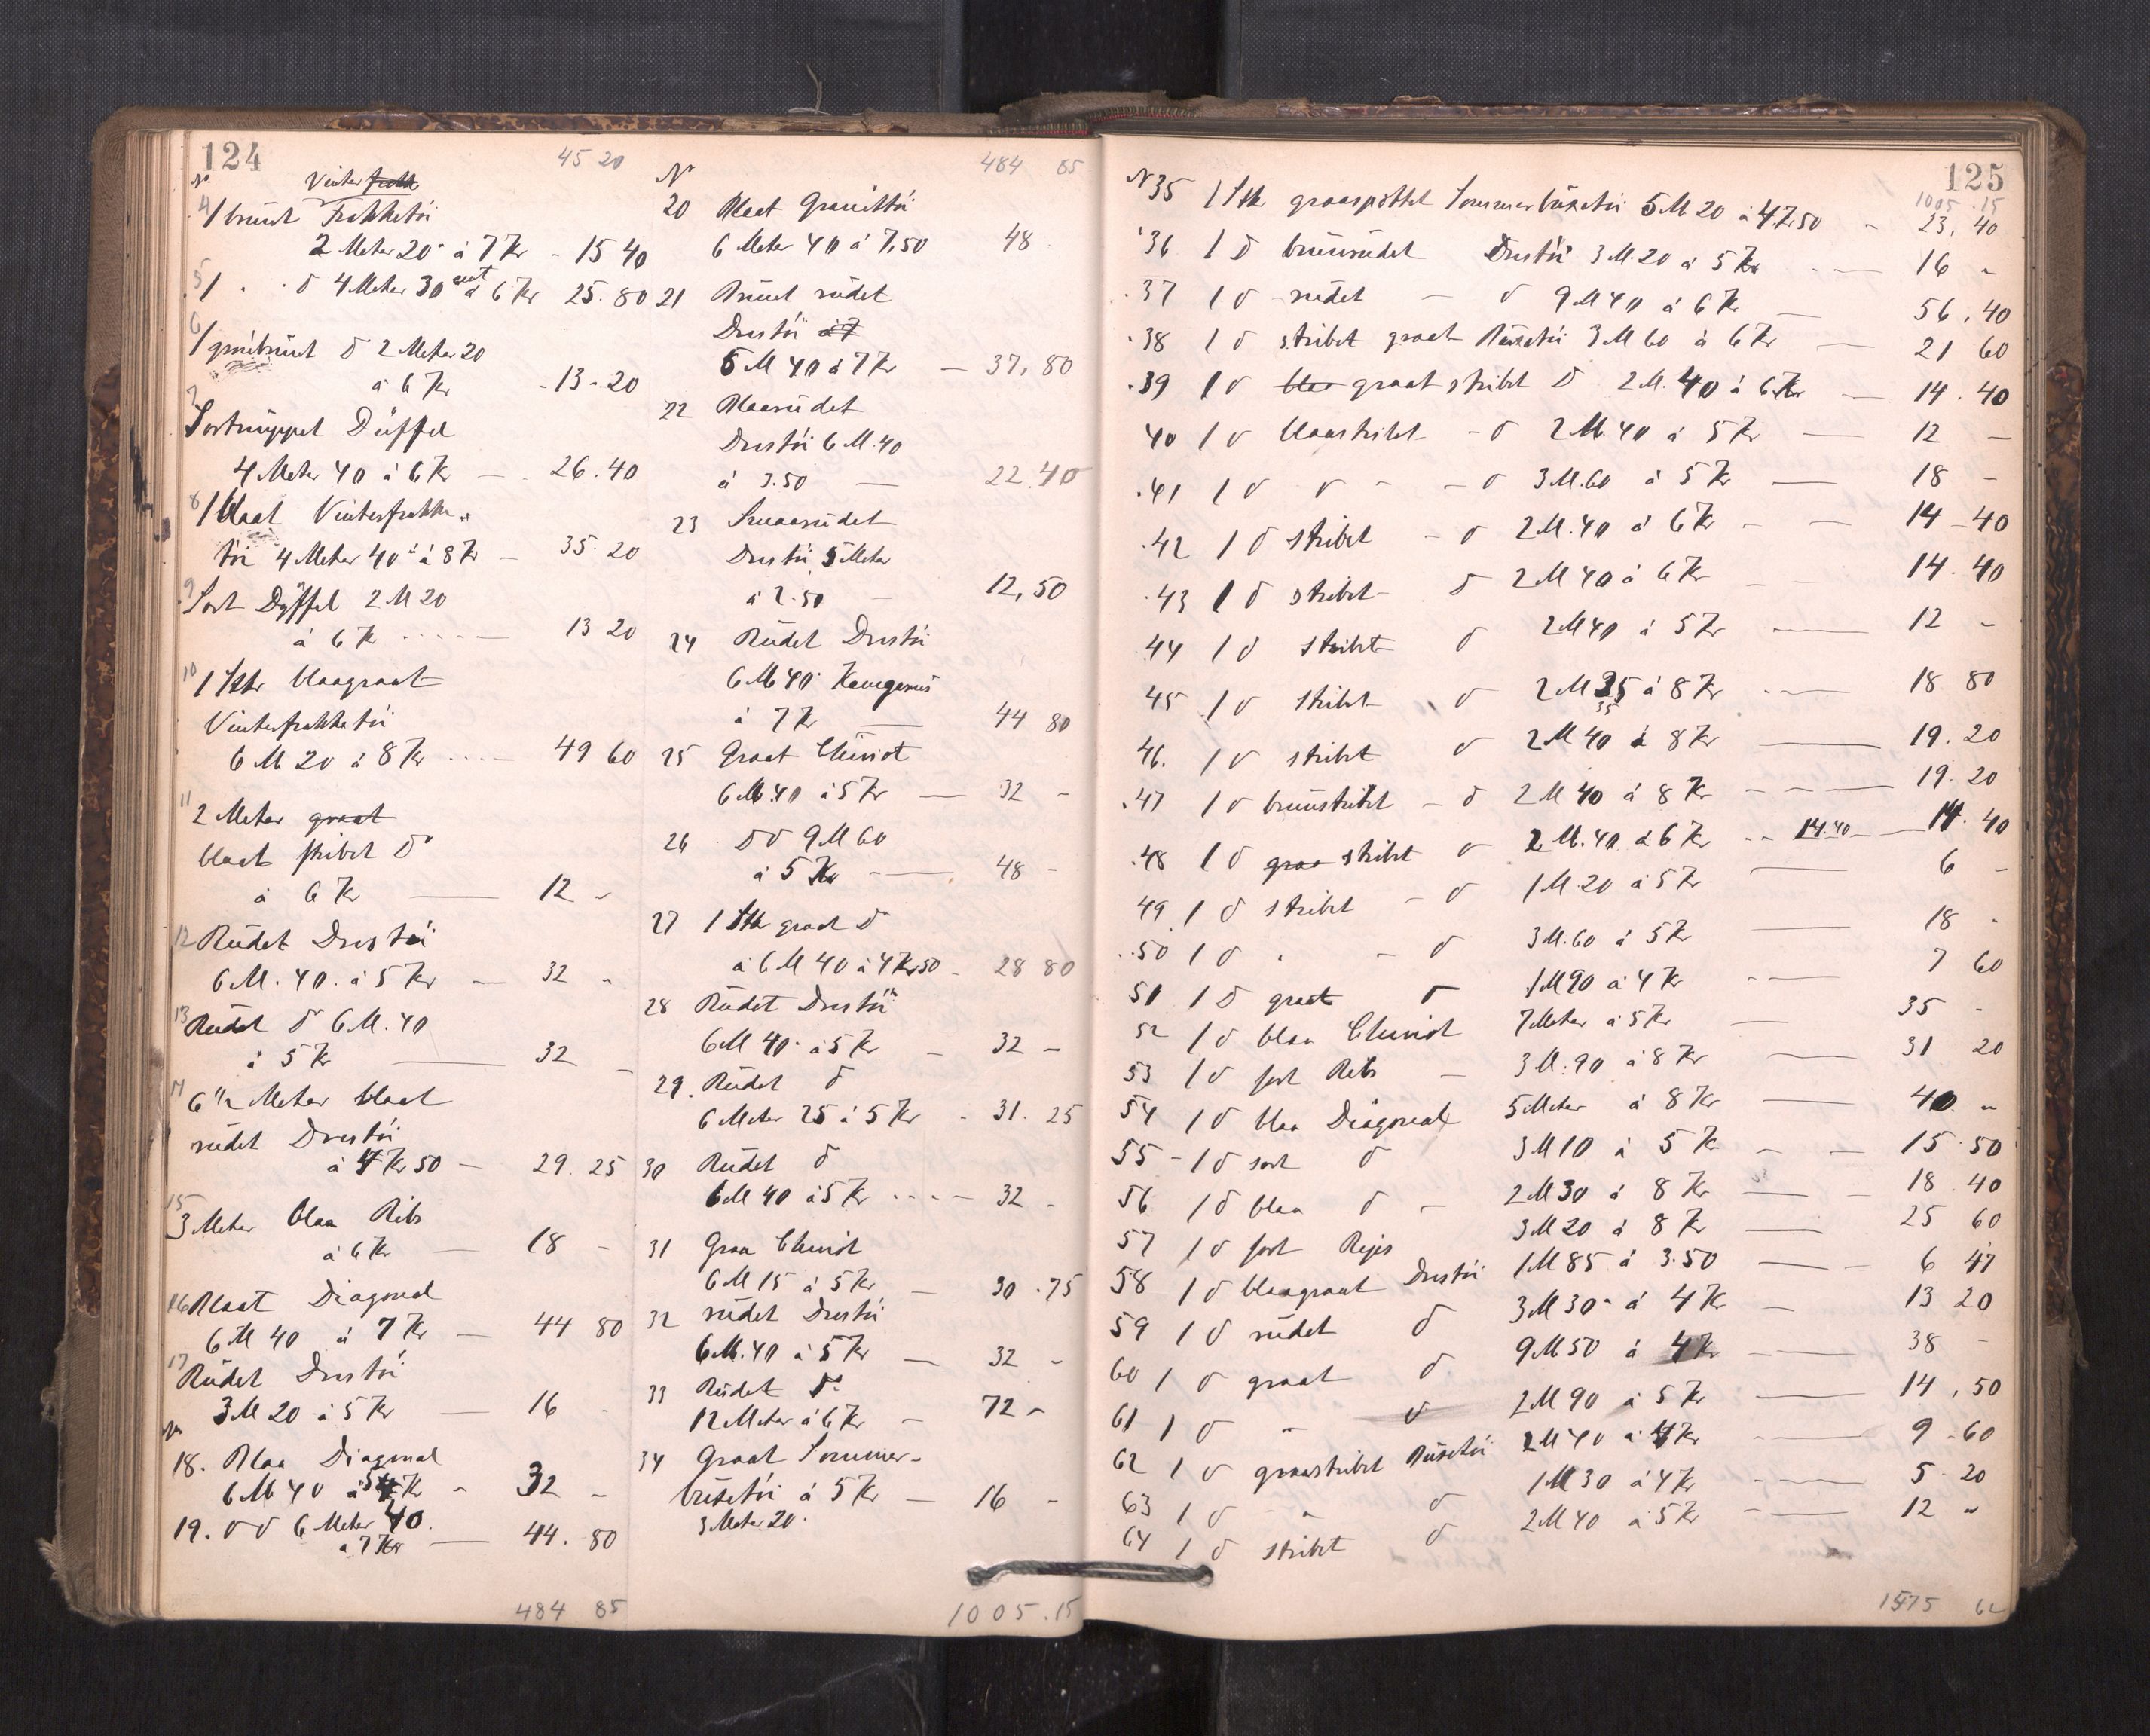 124
45 20
No
Vinter frakk
4 1 brunt Frakketöi
2 Meter 20 á 7 Kr - 15 40
5 1 " " D 4 Meter 30 cent á 6 Kr 25.80
6 1 grönbrunt D 2 Meter 20
á 6 Kr - 13-20
7
Sortnüppet Düffel
4 Meter 40 á 6 Kr — 26.40
8 1 blaat Vinterfrakke-
töi 4 Meter 40 á 8 Kr — 35.20
9 Sort Düffel 2 M 20
á 6 Kr ---- 13 20
10 1 Stk blaagraat
Vinterfrakketöi
6 M 20 á 8 Kr ---- 49 60
11 2 Meter graat
blaat stribet Do
á 6 Kr — 12 -
12 Rüdet Drestöi
6 M. 40. á 5 Kr — 32 -
13 Rüdet D 6 M. 40
á 5 Kr — 32 -
14 6 1/2 Meter blaat
rüdet Drestöi
á 4 Kr 50 — 29.25
15 3 Meter blaa Ribs
á 6 Kr — 18 -
16 Blaat Diagonal
6 M 40 á 7 Kr — 44 80
17 Rüdet Drestöi
3 M 20 á 5 Kr — 16 -
No
18. Blaa Diagonal
6 M 40 á 5 Kr - 32 -
19. D D 6 Meter 40.
á 7 Kr — 44. 80
484 85
484 85
No
20 Blaat Granittöi
6 Meter 40 á 7,50 48
21 Brünt rüdet
Drestöi á 7
5 M 40 á 7 Kr — 37,80
22 Blaarüdet
Drestöi 6 M. 40
á 3.50 — 22.40
23 Smaarüdet
Drestöi 5 Meter
á 2.50 — 12,50
24 Rüdet Drestöi
6 M 40 Kamgarns
á 7 Kr — 44 80
25 Graat Cheviot
6 M. 40 á 5 Kr — 32 -
26 D D 9 M 60
á 5 Kr — 48 -
27 1 Stk graat D
á 6 M 40 á 4 Kr 50 - 28 80
28 Rüdet Drestöi
6 M 40 á 5 Kr - 32 -
29. Rüdet D
6 Meter 25 á 5 Kr - 31.25
30 Rüdet D
6 M 40 á 5 Kr ---- 32 -
31 Graa Cheviot
6 M 15 á 5 Kr — 30.75
32 rüdet Drestöi
6 M. 40 á 5 Kr — 32 -
33 Rüdet Do
12 Meter á 6 Kr — 72 -
34 Graat Sommer-
büxetöi á 5 Kr — 16 -
3 Meter 20.
1005.15
125
1005.15
N 35 1 Stk graaspöttet Sommerbüxetöi 5 M 20 á 4 Kr 50 - 23,40
36 1 D brünrüdet Drestöi 3 M. 20 á 5 Kr — 16 -
37 1 D rüdet — D 9 M 40 á 6 Kr — 56,40
38 1 D stribet graat Büxetöi 3 M 60 á 6 Kr — 21 60
39 1 D blaa graat stribet D 2 M. 40 á 6 Kr — 14.40
40 1 D blaastribet - D 2 M. 40 á 5 Kr — 12 —
41 1 D D - - D 3 M. 60 á 5 Kr — 18 -
42 1 D stribet - D 2 M. 40 á 6 Kr - — 14-40
43 1 D stribet - D 2 M 40 á 6 Kr - - 14.40
44 1 D stribet D 2 M 40 á 5 Kr — 12 -
45 1 D stribet D 2 M 35 á 8 Kr — 18 80
35
46. 1 D stribet D 2 M 40 á 8 Kr — 19.20
47 1 D brünstribet - D 2 M 40 á 8 Kr — 19.20
48 1 D graa stribet D 2 M. 40 á 6 Kr -- 14.40 — 14.40
49 1 D stribet - D 1 M. 20 á 5 Kr — 6 -
50 1 D " - D 3 M. 60 á 5 Kr — 18 -
51 1 D graat D 1 M 90 á 4 Kr --- 7 60
52 1 D blaa Cheviot 7 Meter á 5 Kr — 35 -
53 1 D sort Ribs — 3 M. 90 á 8 Kr — 31 20
54 1 D blaa Diagonal 5 Meter á 8 Kr — 40 -
55 - 1 D sort D 3 M 10 á 5 Kr — 15.50
56 1 D blaa D - 2 M 30 á 8 Kr — 18.40
57 1 D sort Rips 3 M 20 á 8 Kr — 25 60
58 1 D blaagraat Drestöi 1 M 85 á 3.50 — 6 47
59 1 D rüdet D 3 M 30 á 4 Kr — 13 20
60 1 D graat D 9 M 50 á 4 Kr — 38 -
61 1 D " D 2 M 90 á 5 Kr — 14,50
62 1 D graastribet Büxetöi 2 M 40 á 4 Kr — 9-60
63 1 D " D 1 M 30 á 4 Kr — 5 20
64 1 D stribet D 2 M 40 á 5 Kr — 12 -
1575 62